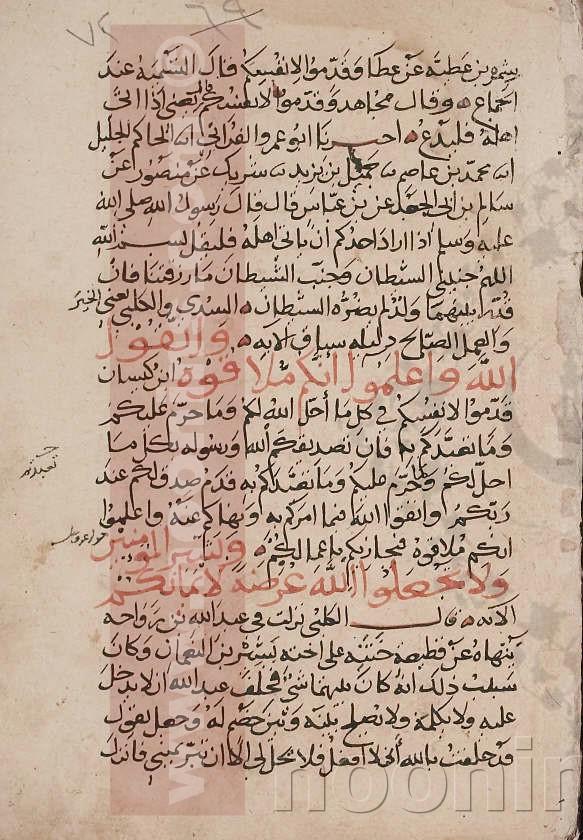 ٧٢ ٦٩
عطية عن عطا وقدموا لانفسكم قال التسمية عند
الجماع وقال مجاهد وقدموا لانفسكم يعنى اذا اتى
اهله فليدع اخبرنا ابو عمرو الفراتى انا الحاكم الجليل
محمد بن عاصم بن يزيد شريك عن منصور عن
سالم بن ابى الجعد عن بن عباس قال قال رسول الله صلى الله
عليه وسلم اذا اراد احدكم ان ياتى اهله فليقل بسم الله
اللهم جنبنى الشيطان وجنب الشيطان ما رزقتنا فان
بينهما ولد لم يضره الشيطان السدى والكلبى يعنى الخير
والعمل الصالح دليله سياق الاية واتقوا
الله واعلموا انكم ملاقوه ابن كيسان
قدموا لانفسكم فى كل ما احل الله لكم وما حرم عليكم
وما تعبدكم به فان تصديقكم الله ورسوله بكل ما
احل لكم وحرم عليكم وما تعبدكم به قدم صدق لكم عند
ربكم واتقوا الله فيما امركم به ونهاكم عنه واعلموا
انكم ملاقوه فيجازيكم باعمالكم وبشر المومنين
ولا تجعلوا الله عرضة لايمانكم
الاية قال الكلبى نزلت فى عبد الله بن رواحة
ينهاه عن قطيعة ختنه على اخته بشير بن النعمان وكان
سبب ذلك انه كان بينهما شى فحلف عبد الله ان لا يدخل
عليه ولا يكلمه ولا يصلح بينه وبين خصم له وجعل يقول
قد حلفت بالله ان لا افعل فلا يحل لى الا ان تبر يمينى فانزل
noonin